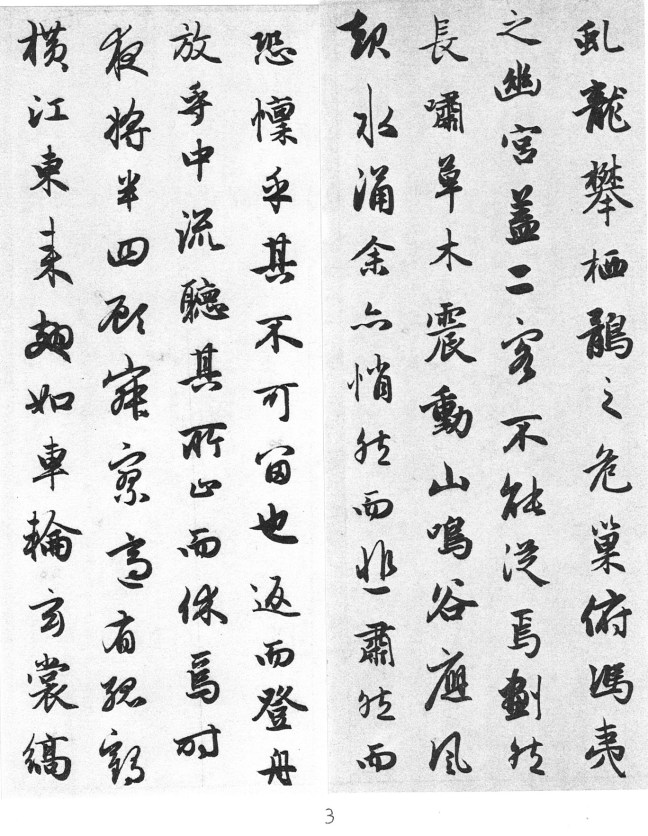 虬龍攀栖鶻之危巢俯馮夷
之幽宮蓋二客不能從焉劃然
長嘯草木震動山鳴谷應風
起水涌余亦悄然而悲肅然而
恐懍乎其不可留也返而登舟
放乎中流聽其所止而休焉時
夜將半四顧寂寥適有孤鶴
橫江東來翅如車輪玄裳縞
3